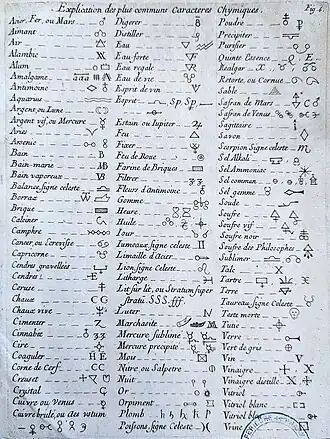 Explication des plus communs Caracteres Chymiques.
Fig. 4
Acier, Fer, ou Mars
Aimant
Air
Alambic
Alum
Amalgame
Antimoine
Aquarius
Argent ou Lune
Argent vif, ou Mercure
Aries
Arsenic
Bain
Bain-marie MB
Bain vaporeux VB
Balance, signe celeste
Borrax
Briques
Calciner
Camphre
Cancer, ou l'ecrevisse
Capricorne
Cendres gravellées
Cendres
Ceruse
Chaux C
Chaux vive
Cimenter Z
Cinnabre
Cire
Coaguler HE
Corne de Cerf CC
Creuset
Crystal
Cuivre ou Venus
Cuivre brulé, ou æs ustum
Digerer
Distiller
Eau
Eau-forte
Eau regale
Eau de vie
Esprit de vin
Esprit Sp. Sp.
Estain ou Jupiter
Etamine
Feu
Feu de Roue
Farine de Briques
Filtrer
Fleurs d'Antimoine
Gomme
Heure
Huile
Jour
Jumeaux, signe Celeste
Limaille d'acier
Lion, signe Celeste
Litharge
Lit sur lit, ou Stratum super
stratum SSS. fff.
Luter
Marchasite
Mercure sublimé
Mercure precipité
Mois
Nitre ou Salpetre
Nuit
Or
Orpiment
Plomb
Poissons, signe Celeste
Poudre
Precipiter
Purifier
Quinte Essence Q. E
Realgar
Retorte, ou Cornue
Sable
Safran de Mars
Safran de Venus
Sagittaire
Savon
Scorpion Signe celeste
Sel Alkali
Sel Armoniac
Sel commun
Sel gemme
Soude
Soufre
Soufre vif
Soufre noir
Soufre des Philosophes
Sublimer
Talc X
Tartre
Terre
Taureau, signe Celeste
Teste morte
Tutie
Verre
Vert de gris
Vin V
Vinaigre
Vinaigre distillé
Vitriol
Vitriol blanc
Vitriol bleu
Vrine